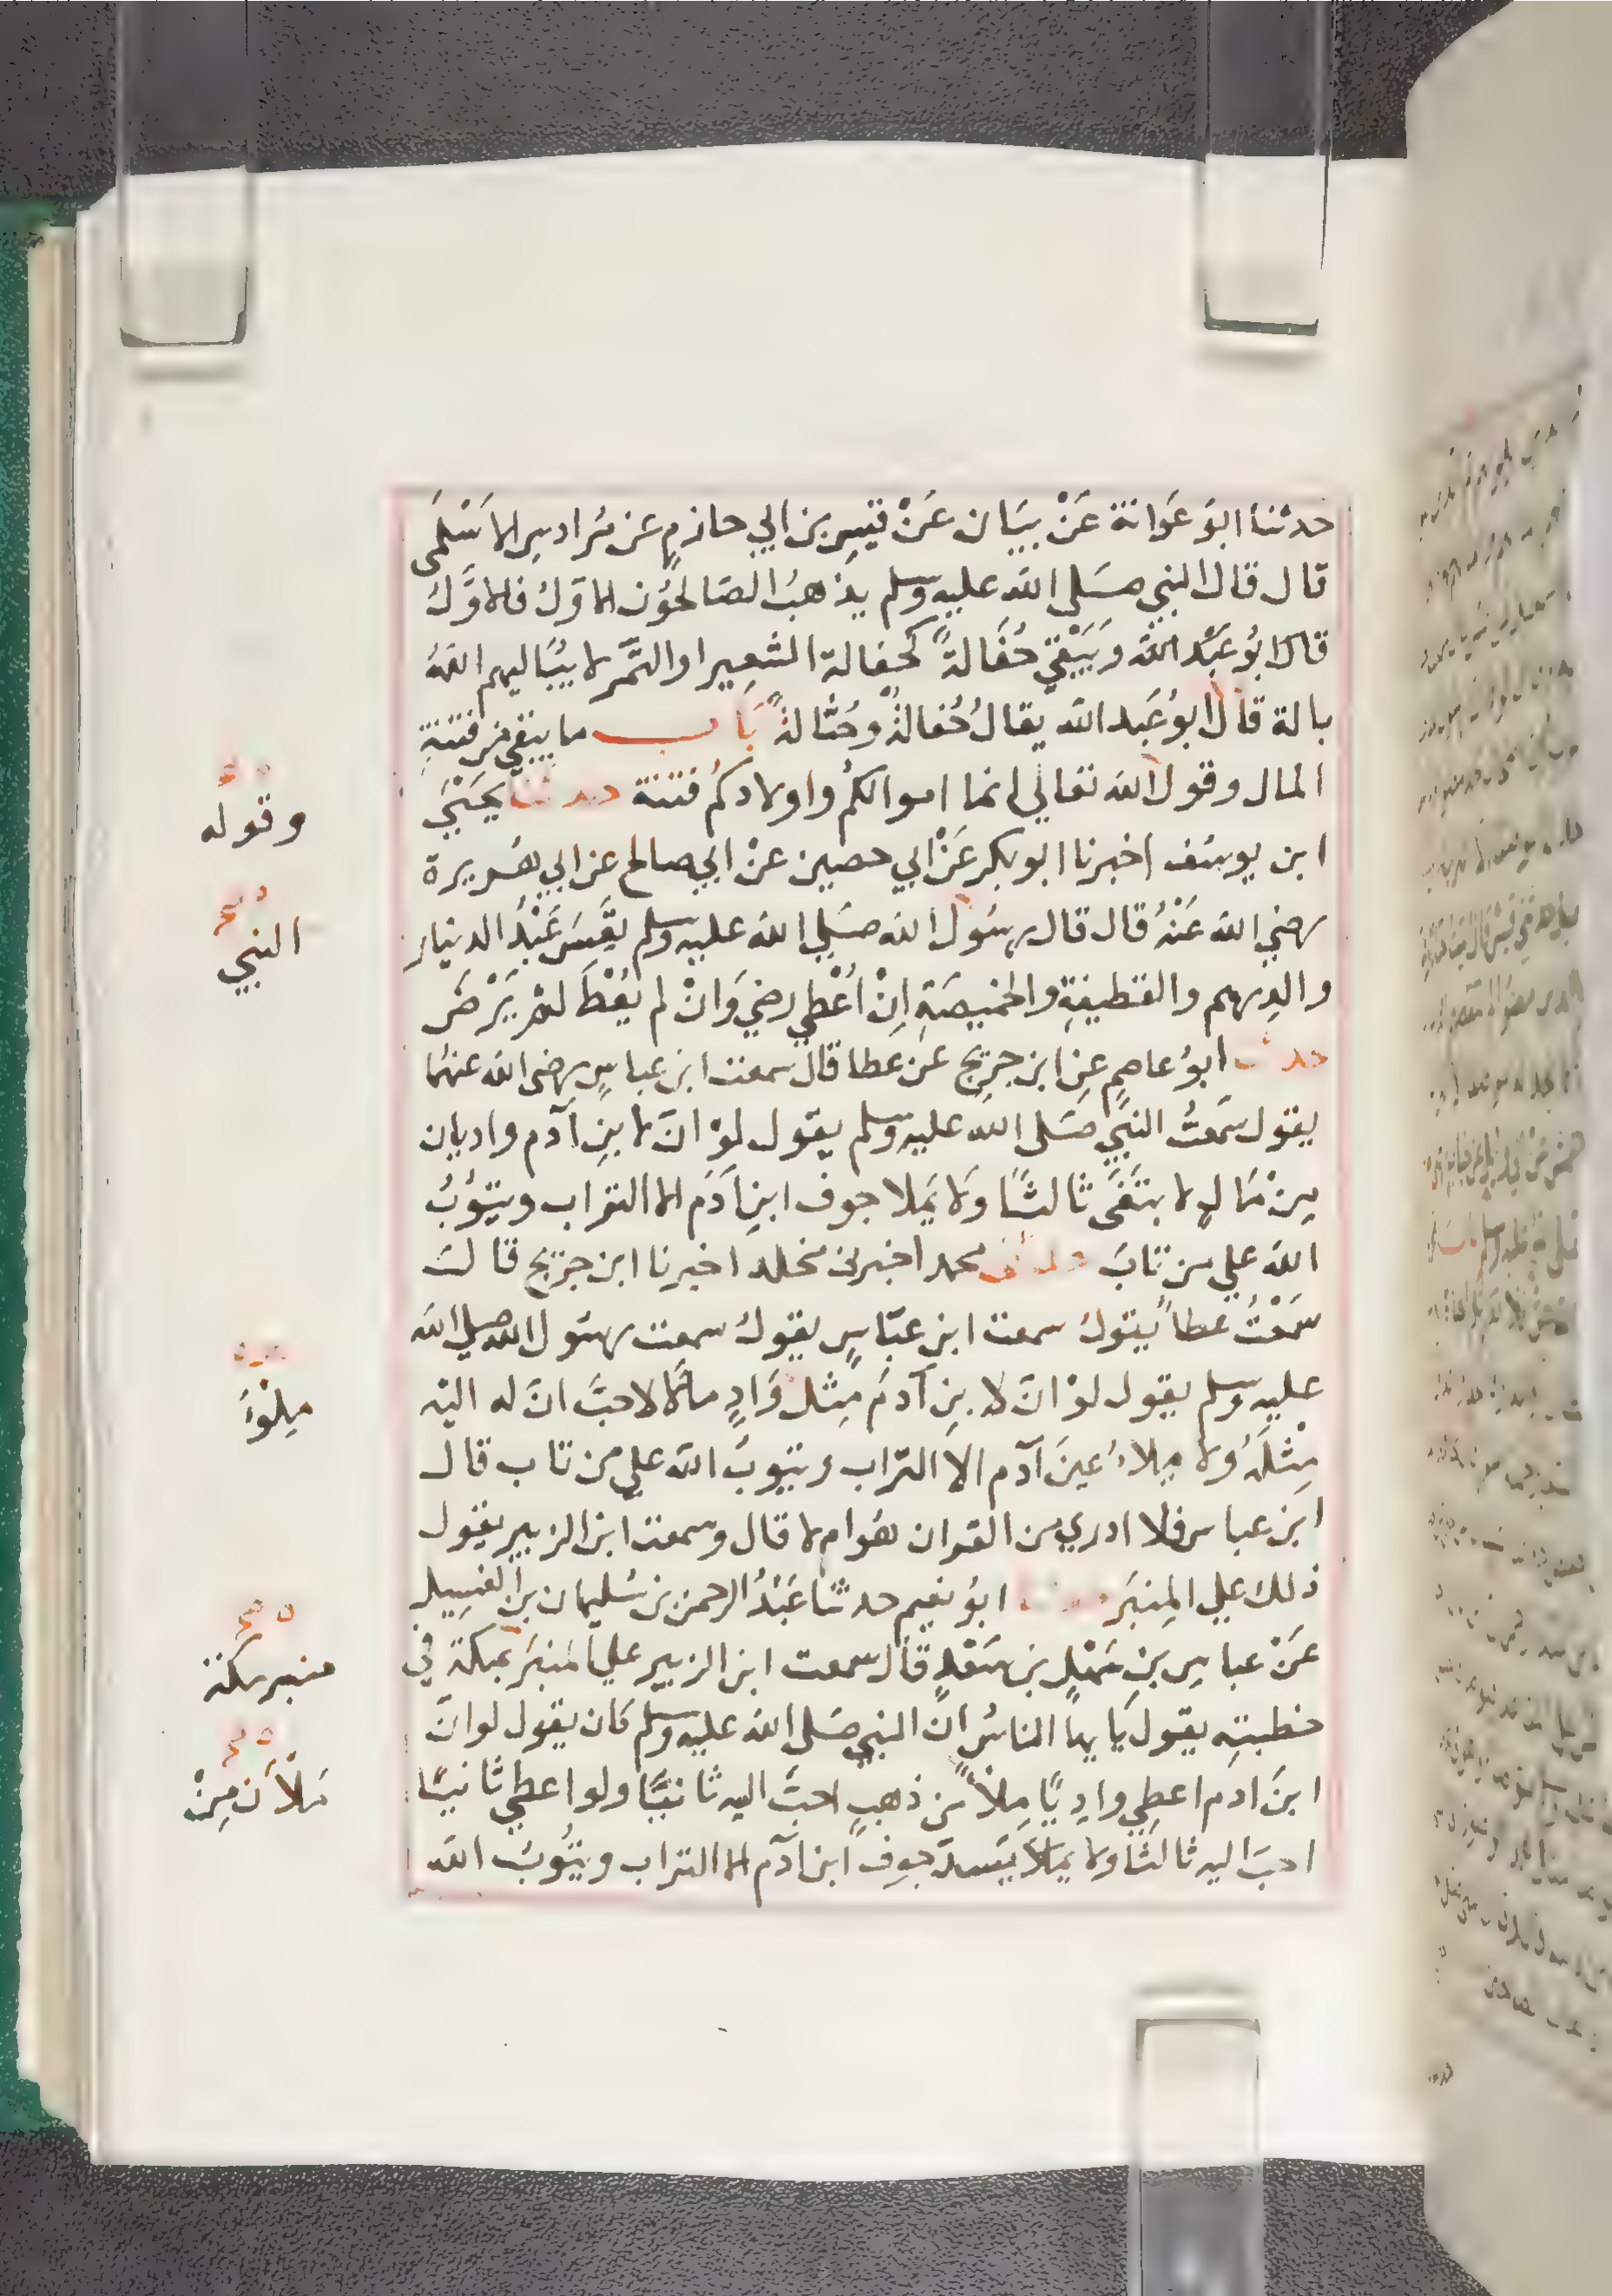 حدثنا ابو عَوَانة عَنْ بيَان عَنْ قيسِ بن ابي حازمٍ عن مرداسِ الاسْلمى
قال قال النبي صَلى الله عليه وسلم يذهبُ الصَالحوُن الاوَلُ فالاوَّلُ
قال ابوُ عَبْد الله وَيَبْقي حُفَالةً كحفالة الشعِير او التَّمر لا يبَاليهم اللهُ
بالة قال ابوُ عَبد الله يقالُ حُفالةٌ وحُثالةٌ بَاب ما يتقي من فتنةِ
المال وقول الله تعالي انما اموالكُم واولادكُم فتنة حدثنا يحيَي
ابن يوسُف اخبرنا ابو بكر عَنْ ابي حصين عنْ ابي صالح عن ابي هُريرة
رضي الله عَنْهُ قال قال رسُول الله صَلي الله عليه وسلم تَعِسَ عَبْدُ الدينار
والدِرهم والقطيفةِ والخميصَةِ اِنْ اُعْطِي رضي وَانْ لم يُعْطَ لمْ يَرْضَ
حدثنا ابوُ عاصمٍ عنِ ابن جريج عن عطا قال سمعت ابن عباسٍ رضى الله عنهُما
يقول سَمعتُ النبَّي صَلى الله عليه وسلم يقول لوْ انَ لابنِ آدم واديان
مِنْ مَالٍ لابتَغَى ثالثًا وَلا يَملا جوف ابنِ آدَم الا التراب ويتوُبُ
الله علي من تابَ حدثنى محمد اخبرنى مخلد اخبرنا ابن جريج قالَ
سَمْعتُ عطاً يقولُ سمعت ابن عبّاسٍ يقولُ سمعت رسُول الله صلي الله
عليه وسلم يقول لوْ انَ لابنِ آدمَ مِثلَ وَادٍ مالًا لاحبَّ انَ له اليْه
مِثْلَهُ ولا يملاءُ عينَ آدم الا التّراب ويتوبُ الله علي من تاب قال
ابن عباس فلا ادري من القران هُو ام لا قال وسمعت ابن الزبير يقول
ذلك علي المِنبَر حدثنا ابوُ نعيم حدثنا عَبْدُ الرحمن بن سُليمان بن الغسِيلِ
عَنْ عباسِ بنِ سَهْلِ بن سَعْدٍ قال سمعت ابن الزبير علي المنبَر بمكة في
خطبتِه يقول يَا يها الناسُ ان النبي صَلى الله عليه وسلم كان يقول لو انَ
ابنَ ادم اعطِي وادِيًا مِلاً من ذهبٍ احبَّ اليه ثانيًا ولو اعطي ثانيًا
احبَ اليه ثالثًا ولا يملا يَسدّ جوفَ ابن آدم الا التراب ويتُوبُ الله
وقوله
النبي
مِلْوءَ
منبر مكة
مَلْآن مِنْ